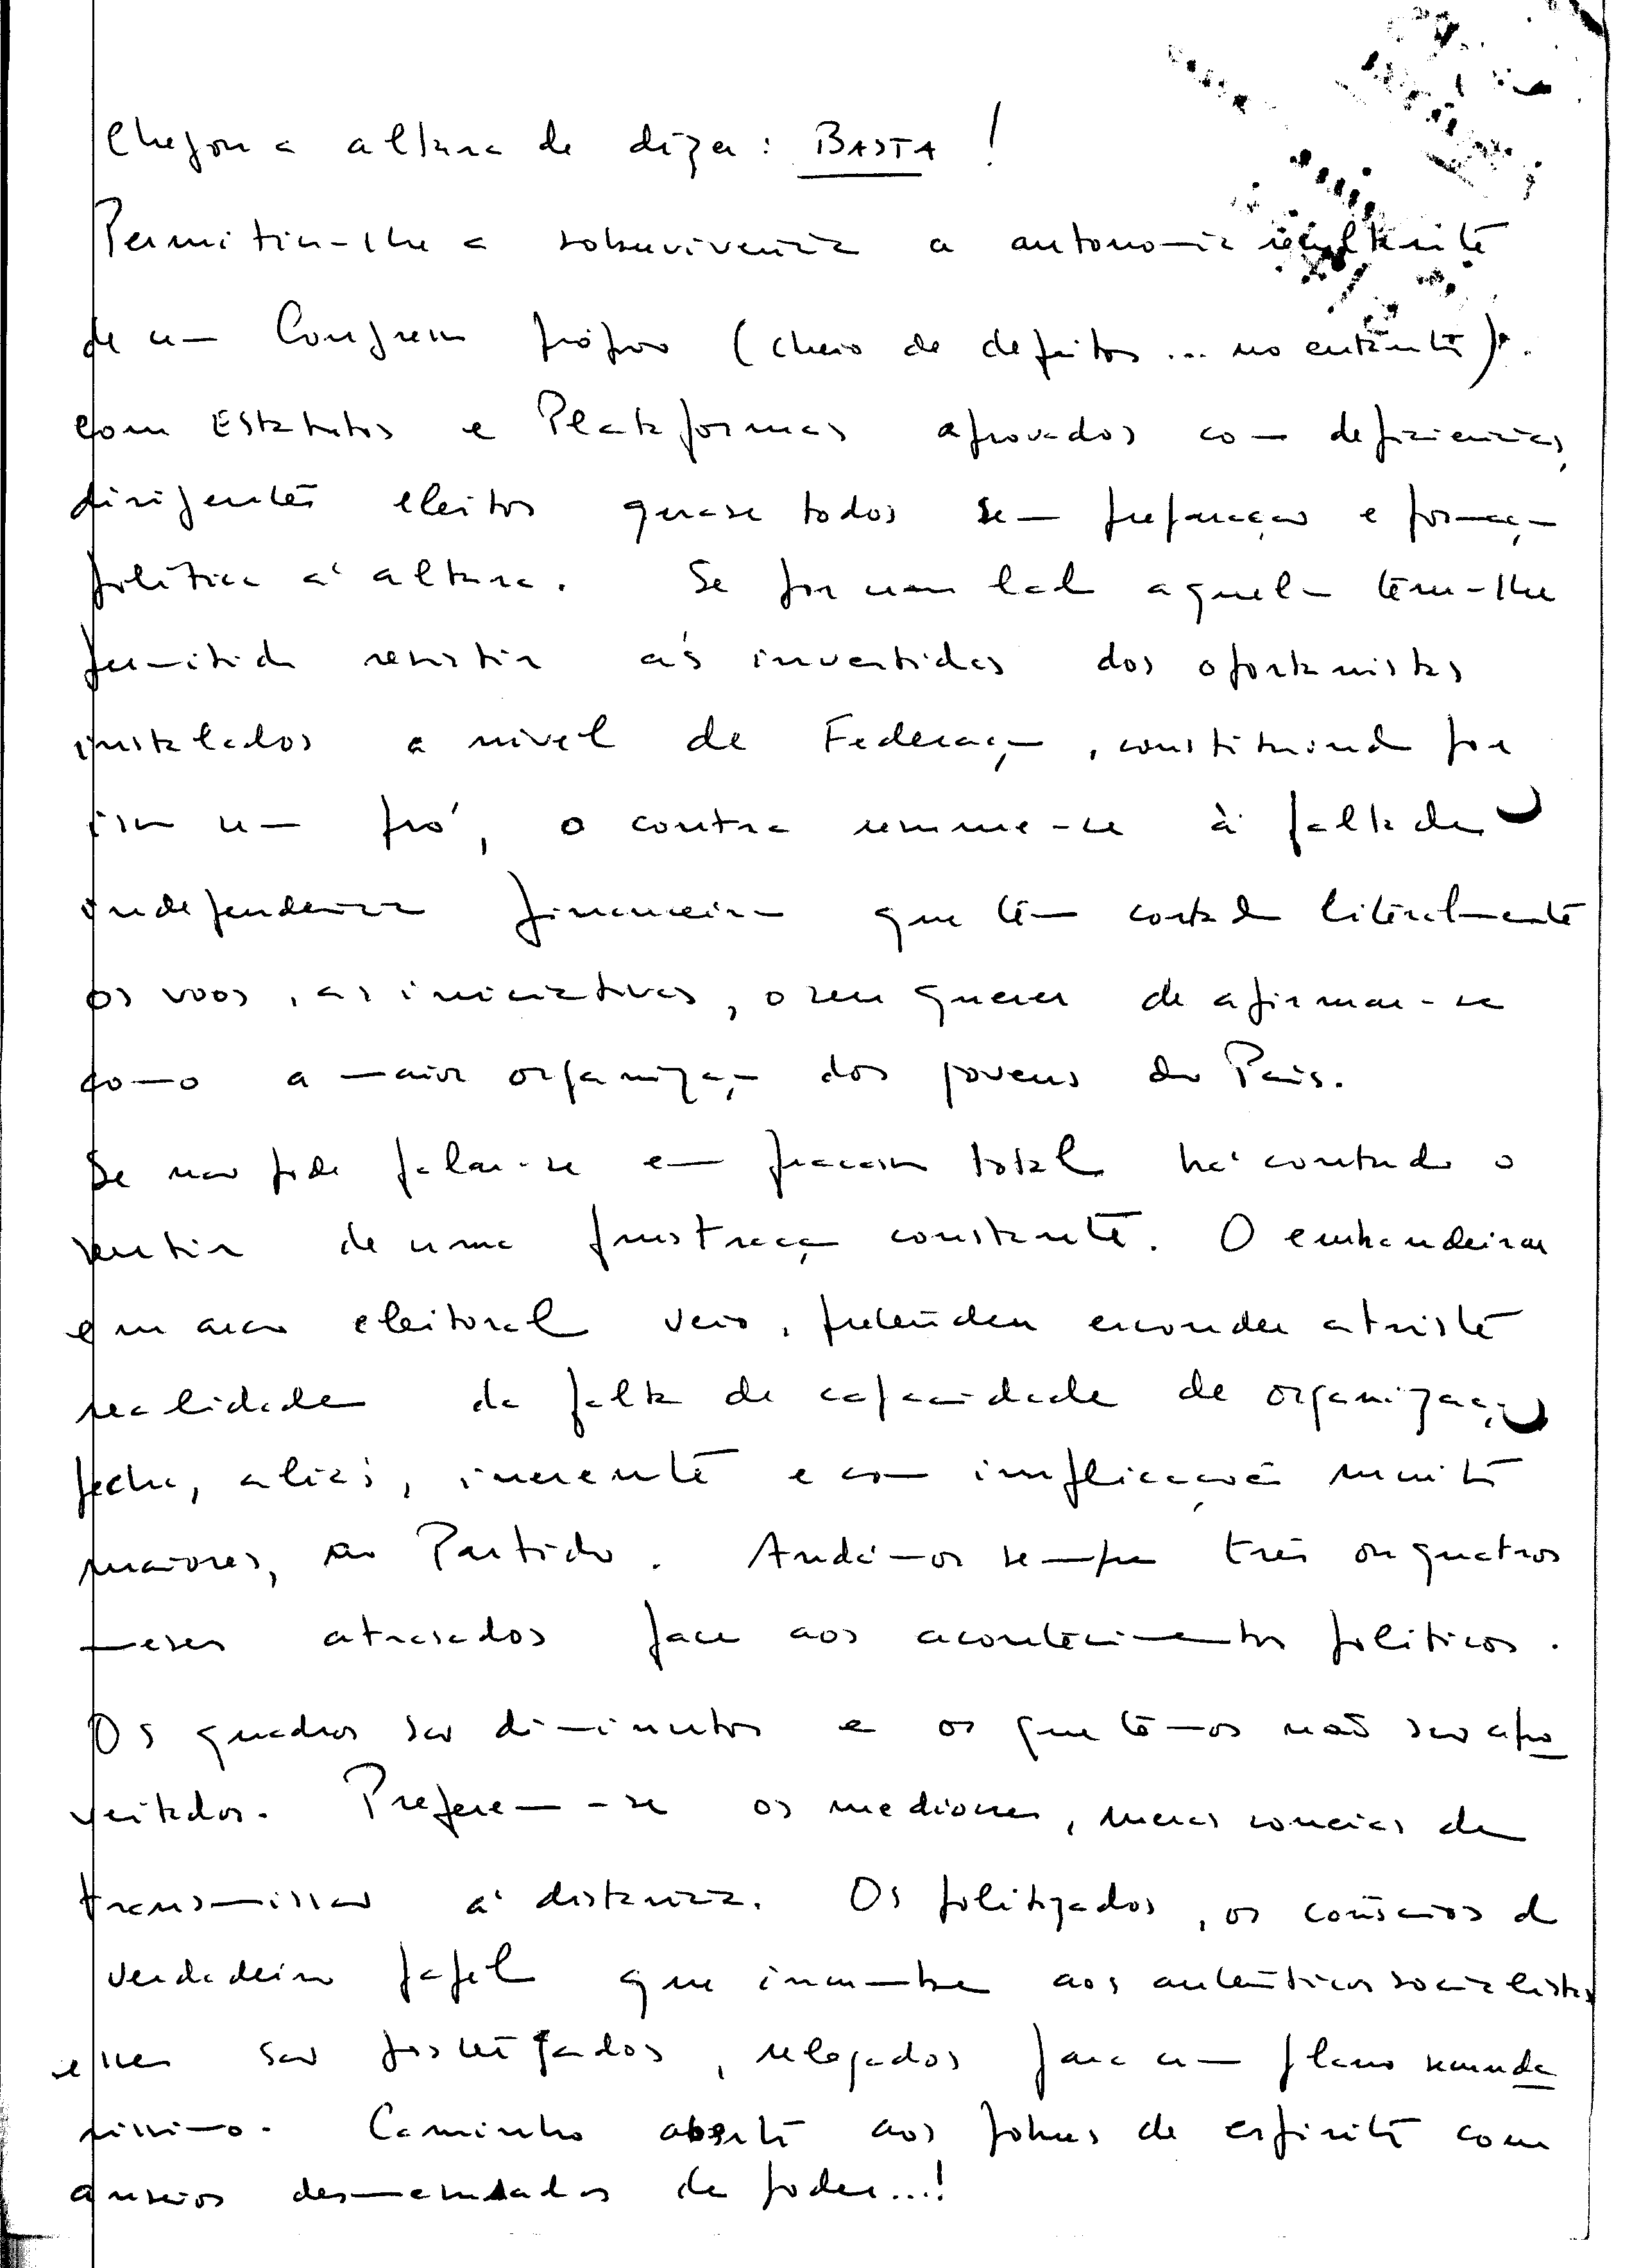 Chegou a altura de dizer: BASTA!
Permitiu-lhe a sobrevivencia a autonomia resultante
de um Congresso próprio (cheio de defeitos... no entanto).
Com Estatutos e Plataformas aprovados com deficiencias,
dirigentes eleitos quase todos sem preparação e formação
politica á altura. Se por um lado aquela tem-lhe
permitido resistir ás investidas dos oportunistas
instalados a nivel de Federação, constituindo por
isso um pró, o contra resume-se à falta de
independencia financeira que tem cortado literalmente
os voos, as iniciativas, o seu querer de afirmar-se
como a maior organização dos jovens do País.
Se não pode falar-se em fracasso total há contudo o
sentir de uma frustração constante. O embandeirar
em arco eleitoral veio, pretender esconder a triste
realidade da falta de capacidade de organização
pecha, aliás, inerente e com implicações muito
maiores, ao Partido. Andámos sempre três ou quatros
meses atrasados face aos acontecimentos politicos.
Os quadros são diminutos e os que temos não são apro
veitados. Preferem-se os mediocres, meras correias de
transmissão á distancia. Os politizados, os consciós do
verdadeiro papel que incumbe aos autênticos socialistas
esses são postergados, relegados para um plano secunda
rissimo. Caminho aberto aos pobres de espirito com
anseios desmesurados de poder...!